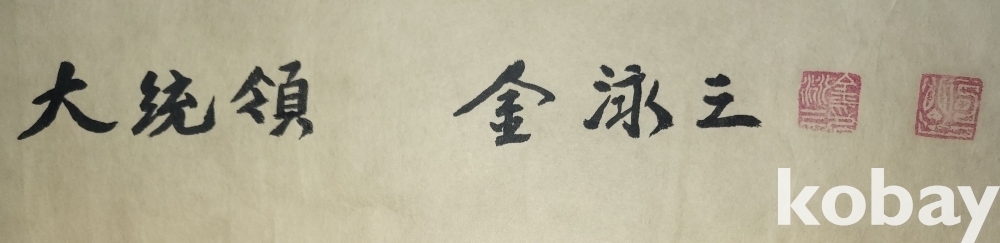 大統領 金泳三
kobay